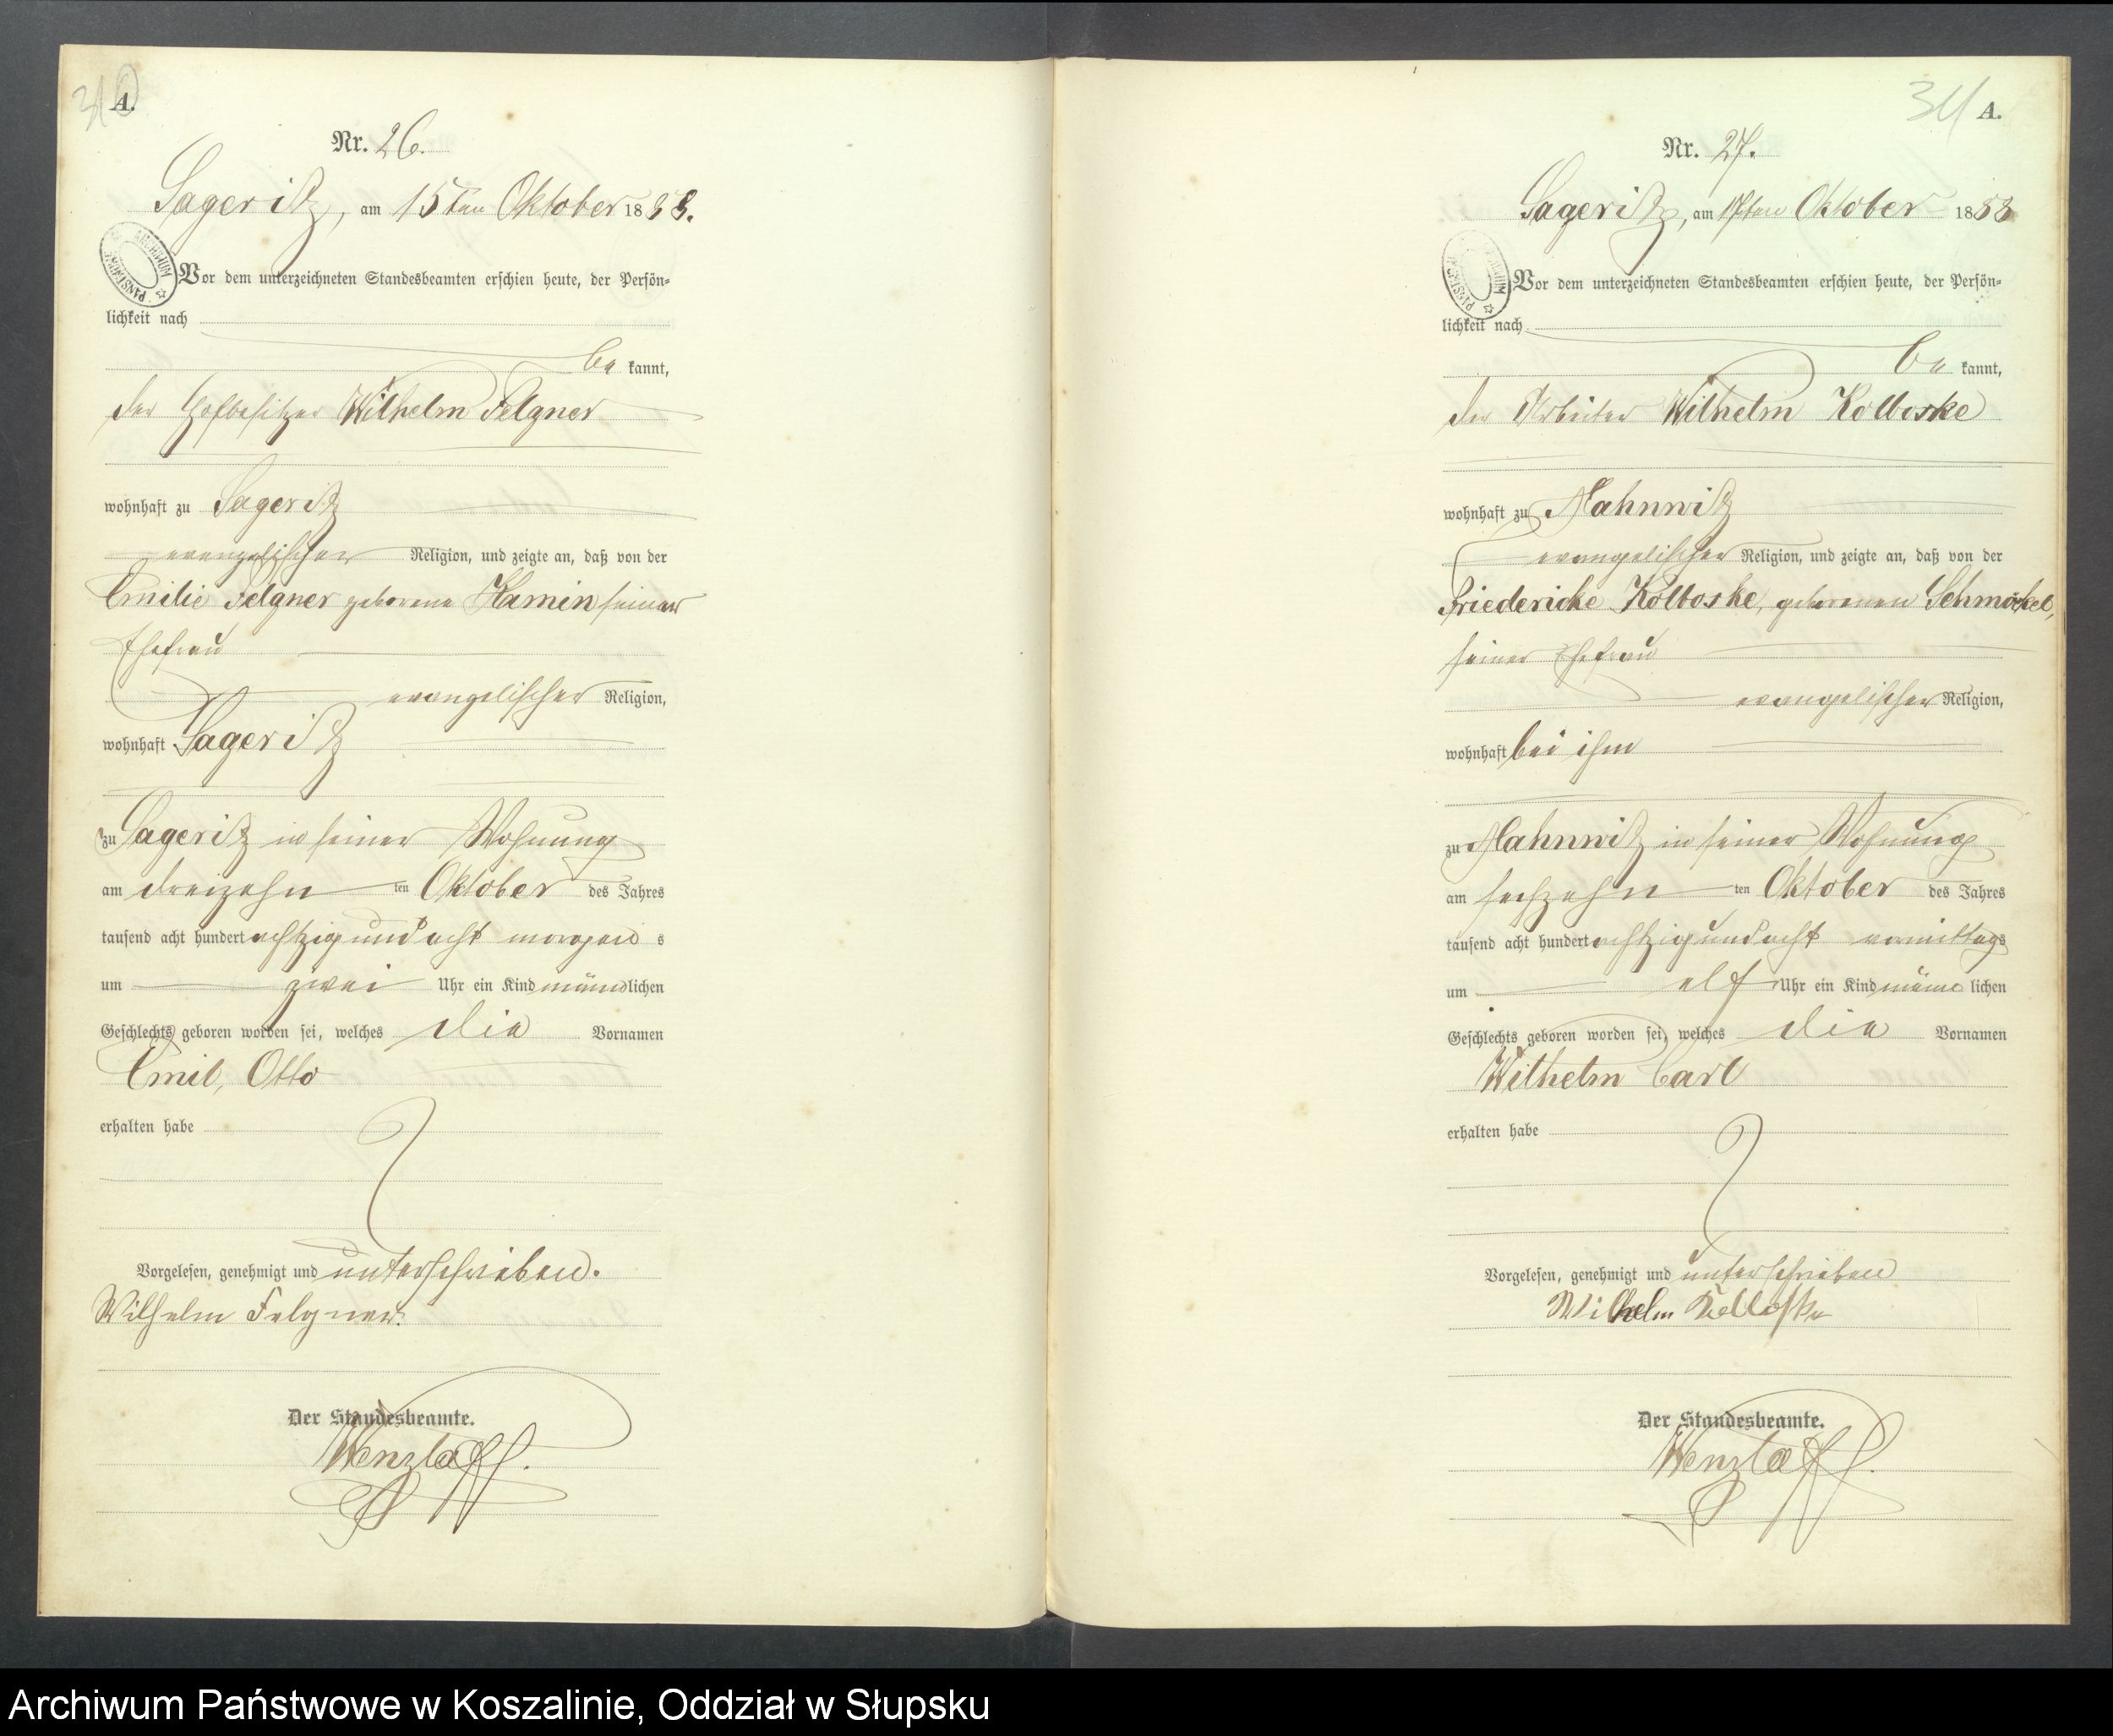 310
A.
Nr. 26.
Sageritz, am 15ten Oktober 1888.
ARCHIWUM PAŃSTWOWE
Vor dem unterzeichneten Standesbeamten erschien heute, der Persön-
lichkeit nach
be kannt,
der Hofbesitzer Wilhelm Felgner
wohnhaft zu Sageritz
evangelischer Religion, und zeigte an, daß von der
Emilie Felgner geborene Kamin seiner
Ehefrau
evangelischer Religion,
wohnhaft Sageritz
zu Sageritz in seiner Wohnung
am dreizehn ten Oktober des Jahres
tausend acht hundert achtzig und acht morgens
um zwei Uhr ein Kind männlichen
Geschlechts geboren worden sei, welches die Vornamen
Emil, Otto
erhalten habe
Vorgelesen, genehmigt und unterschrieben.
Wilhelm Felgner.
Der Standesbeamte.
Wenzlaff.
311
A.
Nr. 27.
Sageritz, am 17ten Oktober 1888
Vor dem unterzeichneten Standesbeamten erschien heute, der Persön-
lichkeit nach
be kannt,
der Arbeiter Wilhelm Kolloske
wohnhaft zu Mahnwitz
evangelischer Religion, und zeigte an, daß von der
Friedericke Kolloske, geborenen Schmöckel,
seiner Ehefrau
evangelischer Religion,
wohnhaft bei ihm
zu Mahnwitz in seiner Wohnung
am sechzehn ten Oktober des Jahres
tausend acht hundert achtzig und acht vormittags
um elf Uhr ein Kind männlichen
Geschlechts geboren worden sei, welches die Vornamen
Wilhelm Carl
erhalten habe
Vorgelesen, genehmigt und unterschrieben
Wilhelm Kolloske
Der Standesbeamte.
Wenzlaff.
Archiwum Państwowe w Koszalinie, Oddział w Słupsku